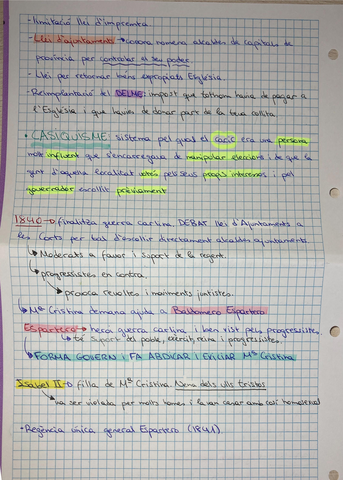 - limitació llei d'impremta.
- Llei d'ajuntaments → corona nomena alcaldes de capitals de
província per controlar el seu poder.
- Llei per retornar béns expropiats Església.
- Reimplantació del DELME: impost que tothom havia de pagar a
l'Església i que havies de donar part de la teva collita.
• CASIQUISME: sistema pel qual el cacic era una persona
molt influent que s'encarregava de manipular eleccions i de que la
gent d'aquella localitat votés pels seus propis interessos i pel
governador escollit prèviament
1840 → finalitza guerra carlina. DEBAT llei d'Ajuntaments a
les Corts per tal d'escollir directament alcaldes ajuntaments.
↳ Moderats a favor i suport de la regent.
↳ progressistes en contra.
↳ provoca revoltes i moviments juntistes.
↳ Mª Cristina demana ajuda a Baldomero Espartero
Espartero → heroi guerra carlina i ben vist pels progressistes
↳ té suport del poble, exèrcit, reina i progressistes.
↳ FORMA GOVERN I FA ABDICAR I EXILIAR Mª Cristina
Isabel II → filla de Mª Cristina. Nena dels ulls tristos
↳ va ser violada per molts homes i la van casar amb cosí homosexual
- Regència única general Espartero (1841)